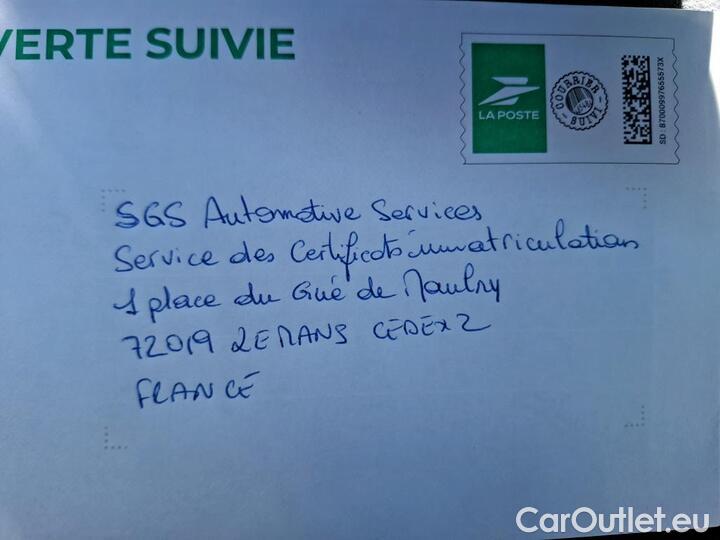 VERTE SUIVIE
LA POSTE
COURRIER
SUIVI
SD : 87000997655573X
SGS Automotive Services
Service des Certificats immatriculation
1 place du Gué de Maulny
72019 LE MANS CEDEX 2
FRANCE
CarOutlet.eu